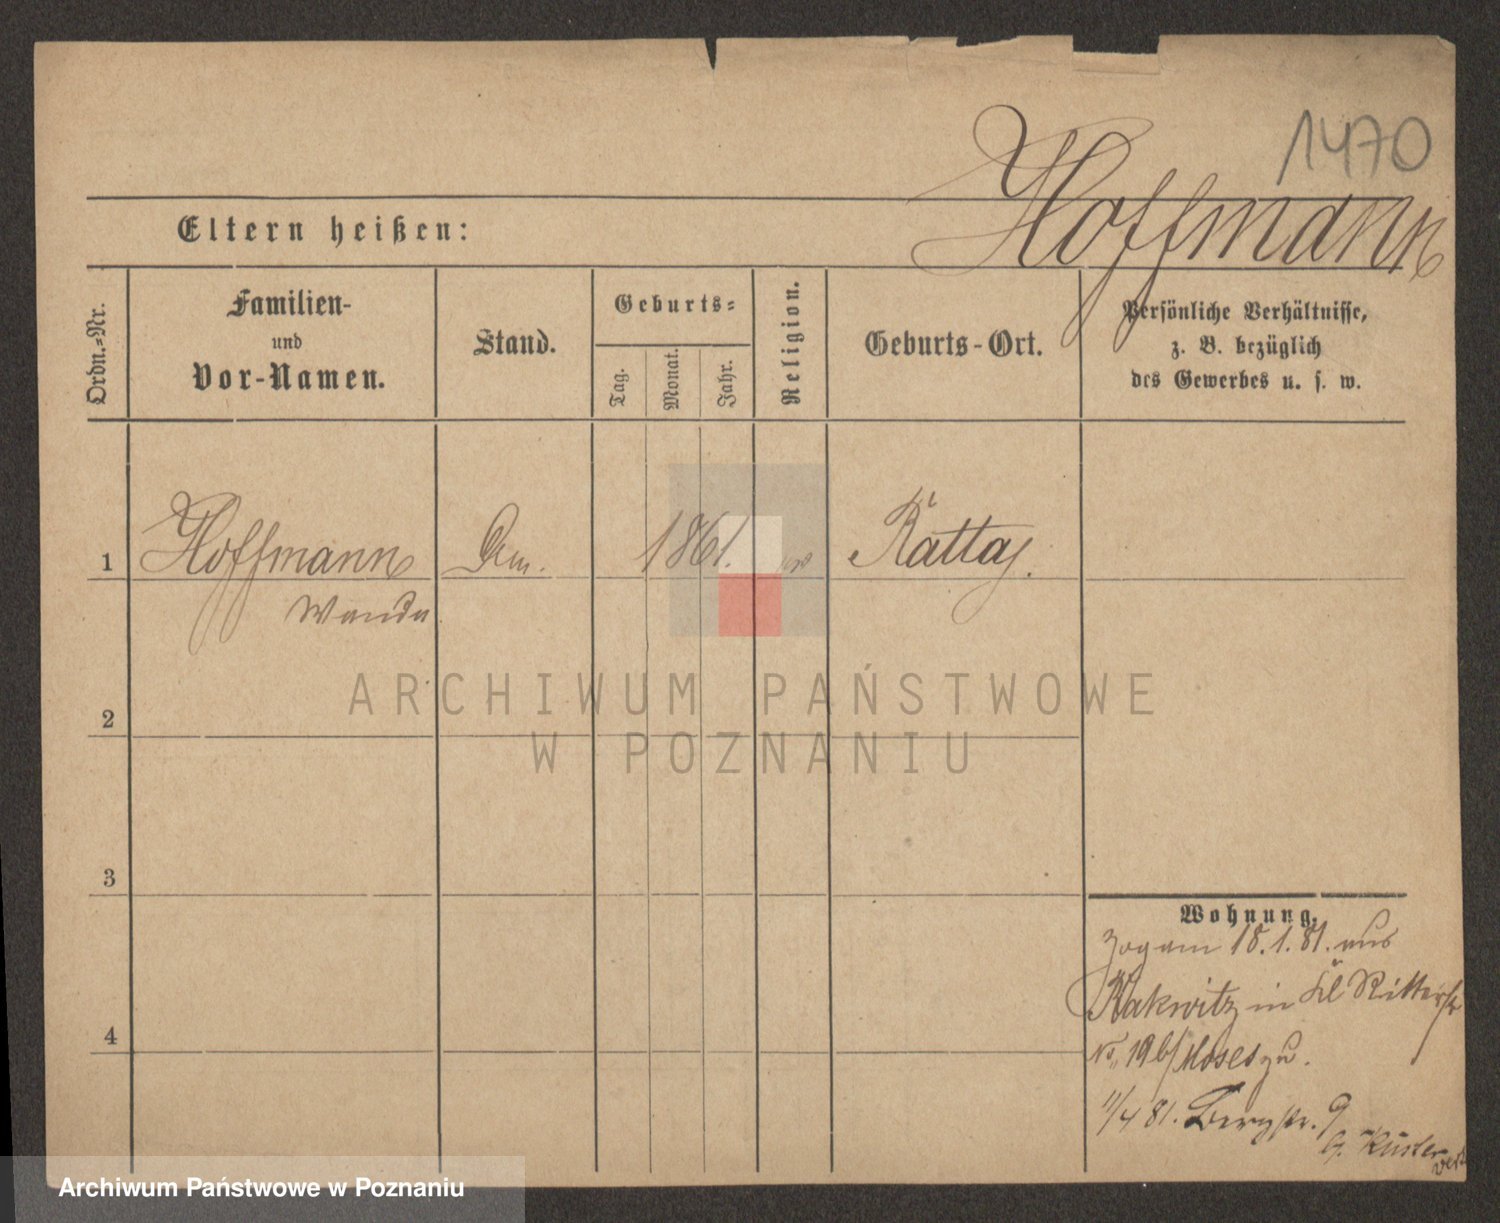 1470
Hoffmann
Eltern heißen:
Ordn.-Nr.
Familien-
und
Vor-Namen.
Stand.
Geburts-
Tag.
Monat.
Jahr.
Religion.
Geburts-Ort.
Persönliche Verhältnisse,
z. B. bezüglich
des Gewerbes u. s. w.
1 Hoffmann 1861. Rattaj.
Wanda
2
3
4
Wohnung.
Zog am 18.1.81. aus
Rakwitz in Kl Ritterstr
No 19 b/ Moses zu.
1/4 81. Bergstr. 9
ARCHIWUM PAŃSTWOWE
W POZNANIU
Archiwum Państwowe w Poznaniu